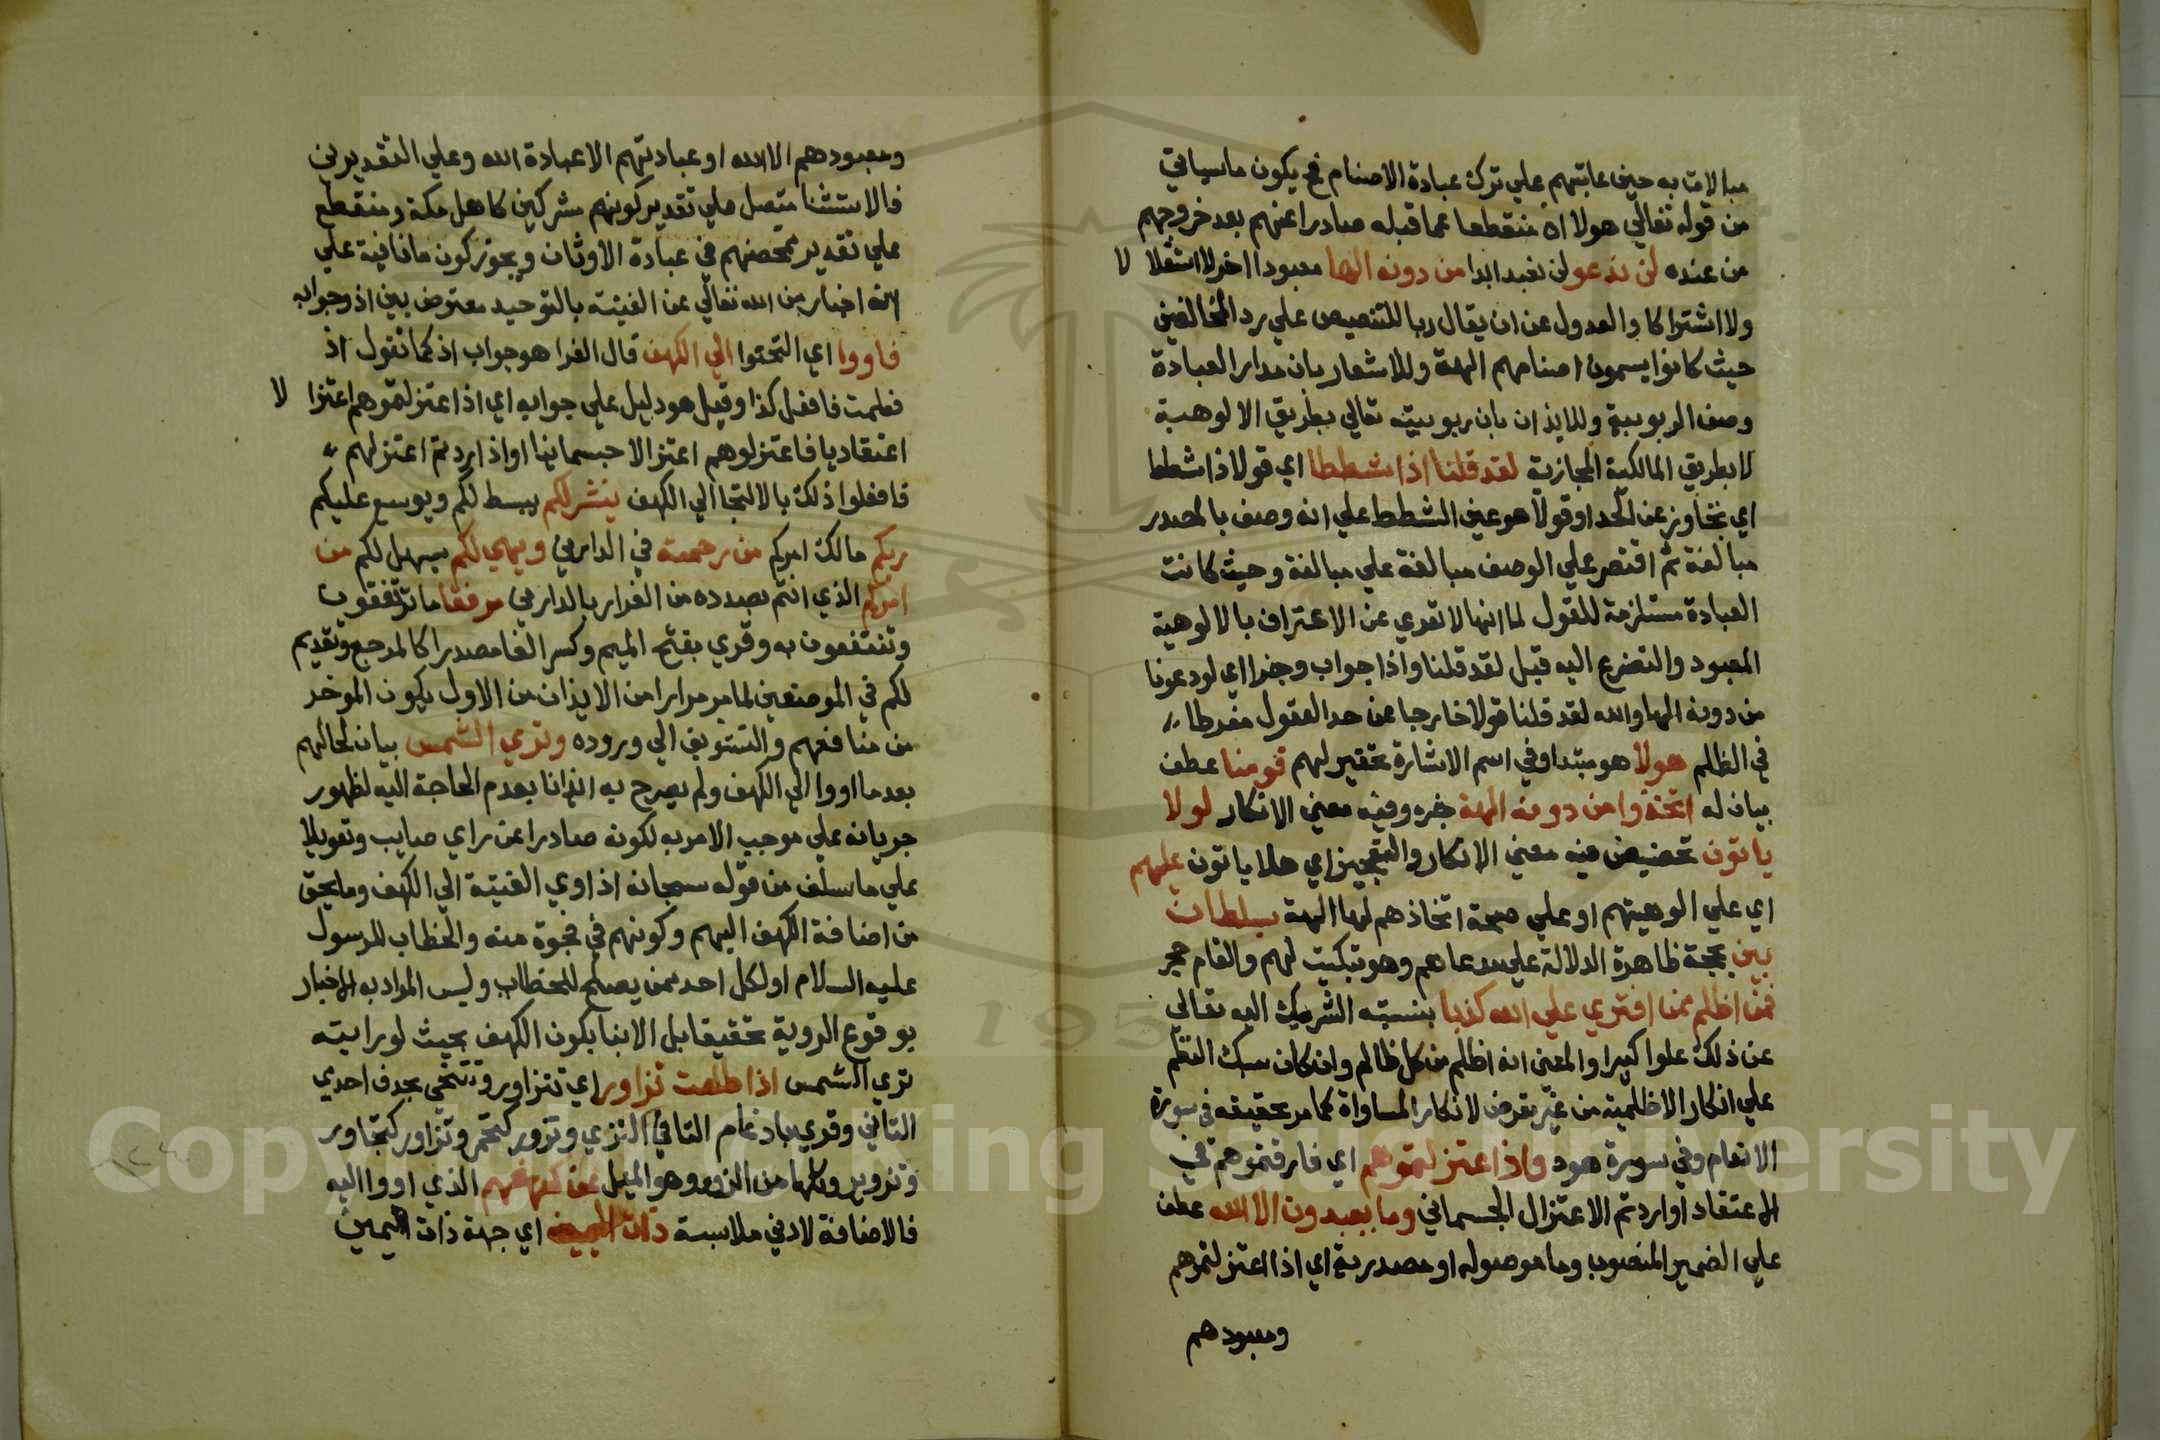 مبالاة به حين عاتبهم علي ترك عبادة الاصنام فح يكون ماسياتي
من قوله تعالي هولا اه منقطعا عما قبله صادرا عنهم بعد خروجهم
من عنده لن ندعو لن نعبد ابدا من دونه الها معبودا اخر لا استقلا لا
ولا اشتراكا والعدول عن ان يقال ربا للتنصيص علي رد المخالفين
حيث كانوا يسمون اصنامهم الهة وللاشعار بان مدار العبادة
وصف الربوبية وللايذان بان ربوبيته تعالي بطريق الالوهية
لا بطريق المالكية المجازية لقد قلنا اذا شططا اي قولا ذا شطط
اي تجاوز عن الحد او قولا هو عين الشطط علي انه وصف بالمصدر
مبالغة ثم اقتصر علي الوصف مبالغة علي مبالغة وحيث كانت
العبادة مستلزمة للقول لما انها لا تعري عن الاعتراف بالالوهية
المعبود والتضرع اليه قيل لقد قلنا واذا جواب وجزا اي لو دعونا
من دونه الها والله لقد قلنا قولا خارجا عن حد العقول مفرطا
في الظلم هولا هو مبتدا وفي اسم الاشارة تحقير لهم قومنا عطف
بيان له اتخذوا من دونه الهة خبره وفيه معني الانكار لولا
ياتون تحضيض فيه معني الانكار والتعجيز اي هلا ياتون عليهم
اي علي الوهيتهم او علي صحة اتخاذهم لها الهة بسلطان
بين بحجة ظاهرة الدلالة علي مدعاهم وهو تبكيت لهم والقام حجر
فمن اظلم ممن افتري علي الله كذبا بنسبته الشريك اليه تعالي
عن ذلك علوا كبيرا والمعني انه اظلم من كل ظالم وان كان سبك النظم
علي انكار الاظلمية من غير تعرض لانكار المساواة كما مر تحقيقه في سورة
الانعام وفي سورة هود واذ اعتزلتموهم اي فارقتموهم في
الاعتقاد او اردتم الاعتزال الجسماني وما يعبدون الا الله عطف
علي الضمير المنصوب وما موصوله او مصدرية اي اذا اعتزلتموهم
ومعبودهم
ومعبودهم الا الله او عبادتهم الا عبادة الله وعلي التقديرين
فالاستثنا متصل علي تقدير كونهم مشركين كاهل مكة ومنقطع
علي تقدير تمحضهم في عبادة الاوثان ويجوز كون ما نافية علي
انه اخبار من الله تعالي عن الفيئه بالتوحيد معترض بين اذ وجوابه
فاووا اي التجئوا الي الكهف قال الفرا هو جواب اذ كما تقول اذ
فعلمت فافعل كذا وقيل هو دليل علي جوابه اي اذا اعتزلتموهم اعتزا لا
اعتقاديا فاعتزلوهم اعتزالا جسمانيا او اذا اردتم اعتزلهم
فافعلوا ذلك بالالتجا الي الكهف ينشر لكم يبسط لكم ويوسع عليكم
ربكم مالك امركم من رحمته في الدارين ويهيي لكم يسهل لكم من
امركم الذي انتم بصدده من الفرار بالدارين مرفقا ما ترتفقون
وتنتفعون به وقري بفتح الميم وكسر الفا مصدرا كالمرجع وتقديم
لكم في الموضعين لما مر مرارا من الايذان من الاول بكون الموخر
من منافعهم والتشويق الي وروده وتري الشمس بيان لحالهم
بعد ما اووا الي الكهف ولم يصرح به ايذانا بعدم الحاجة اليه لظهور
جريانه علي موجب الامر به لكونه صادرا عن راي صايب وتعويلا
علي ما سلف من قوله سبحانه اذ اوي الفتية الي الكهف وما يحق
من اضافة الكهف اليهم وكونهم في فجوة منه والخطاب للرسول
عليه السلام او لكل احد ممن يصلح للخطاب وليس المراد به الاخبار
بوقوع الروية تحقيقا بل الانبا بكون الكهف بحيث لو رايته
تري الشمس اذا طلعت تزاور اي تتزاور وتتنحي بحذف احدي
التاني وقري بادغام التا في الزي وتزور كتحمر وتزاور كتحاور
وتزوير وكلها من الزور وهو الميل عن كهفهم الذي اووا اليه
فالاضافة لادني ملابسة ذات اليمين اي جهة ذات اليمين
Copyright © King Saud University
195